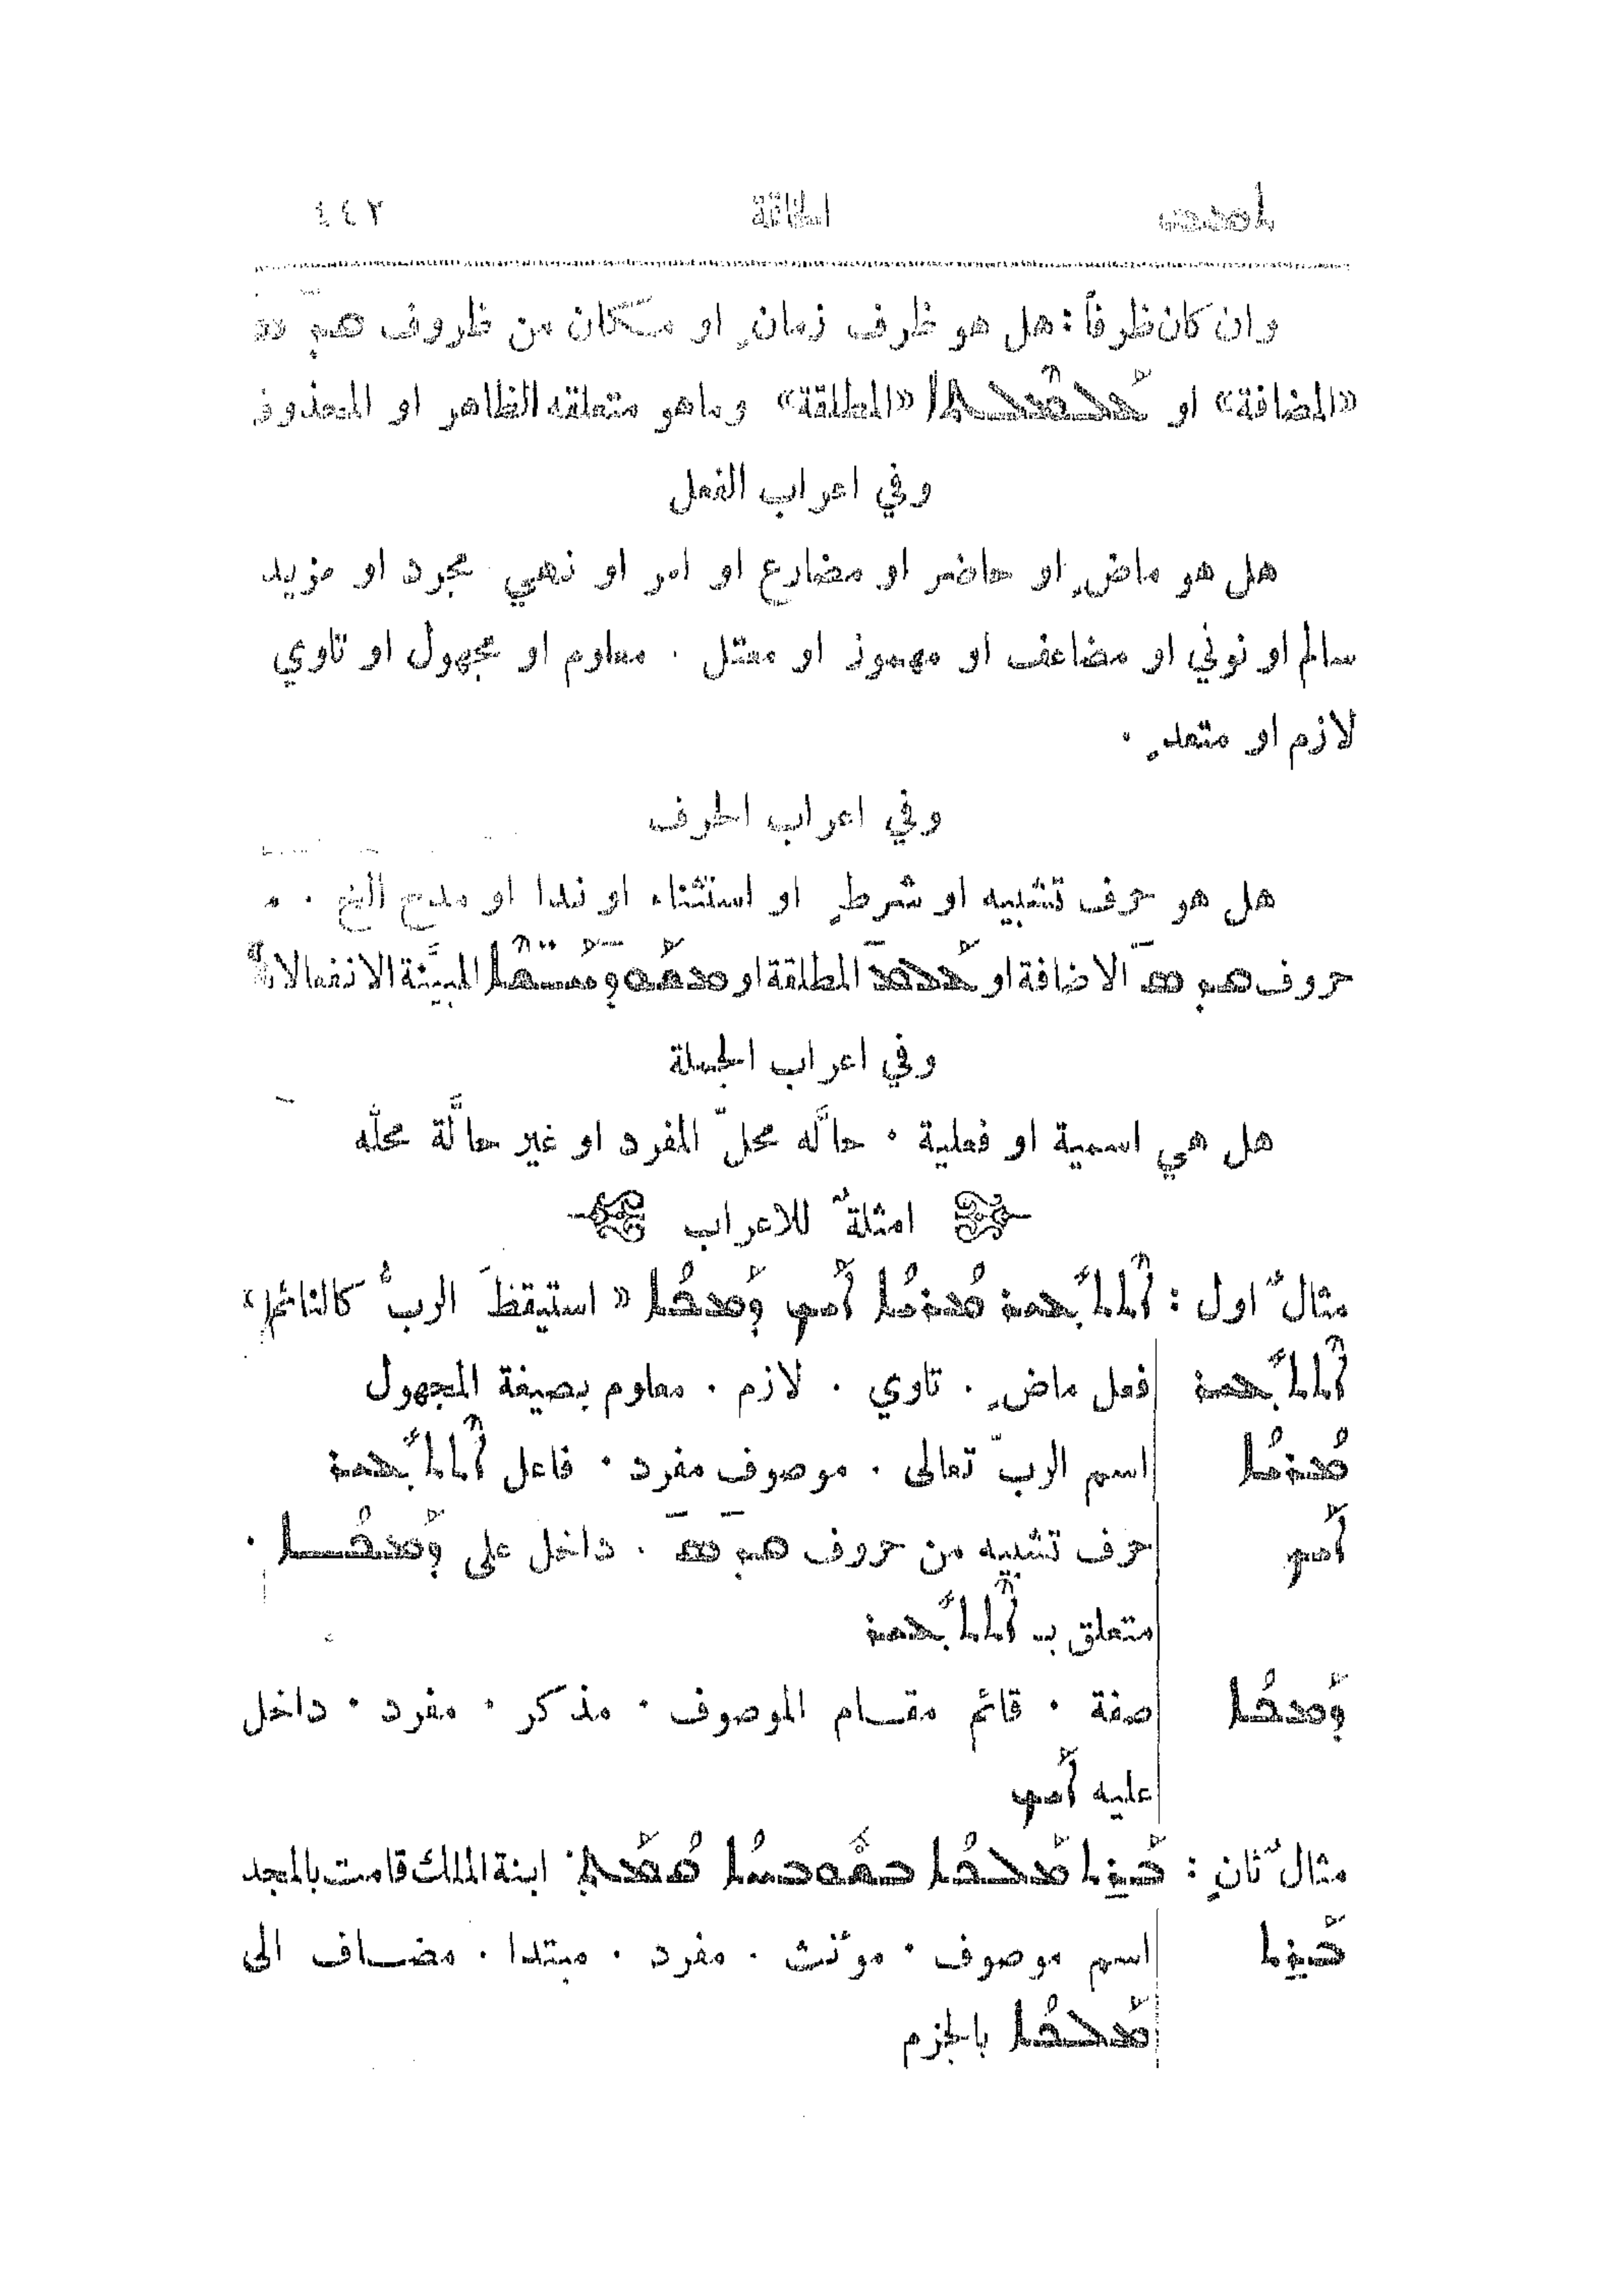 الخاقة ٤٤٢
وان كان ظرفاً : هل هو ظرف زمانٍ او مكان من ظروف
«المضافة» او «المطلقة» وما هو متعلقه الظاهر او المحذوف
وفي اعراب الفعل
هل هو ماضٍ او حاضر او مضارع او امر او نهي مجرد او مزيد
سالم او نوني او مضاعف او مهموز او معتل . معلوم او مجهول او تاوي
لازم او متعدٍ .
وفي اعراب الحرف
هل هو حرف تشبيه او شرطٍ او استثناء او ندا او مدح الخ .
حروف الاضافة او المطلقة او المبيَّنة الانفعالات
وفي اعراب الجملة
هل هي اسمية او فعلية . حالَّه محلّ المفرد او غير حالَّة محله
امثلةٌ للاعراب
مثالٌ اول : ܐܶܬܬܥܺܝܪ ܡܳܪܝܳܐ ܐܰܝܟ ܕܰܡܟܳܐ « استيقظَ الربُّ كالنائم »
ܐܶܬܬܥܺܝܪ فعل ماضٍ . تاوي . لازم . معلوم بصيغة المجهول
ܡܳܪܝܳܐ اسم الربّ تعالى . موصوف مفرد . فاعل ܐܶܬܬܥܺܝܪ
ܐܰܝܟ حرف تشبيه من حروف . داخل على ܕܰܡܟܳܐ .
متعلق بـ ܐܶܬܬܥܺܝܪ
ܕܰܡܟܳܐ صفة . قائم مقام الموصوف . مذكر . مفرد . داخل
عليه ܐܰܝܟ
مثالٌ ثانٍ : ܒܰܪܬ ܡܰܠܟܳܐ ܒܫܽܘܒܚܳܐ ܩܳܡܰܬ ابنة الملك قامت بالمجد
ܒܰܪܬ اسم موصوف . موٴنث . مفرد . مبتدا . مضاف الى
ܡܰܠܟܳܐ بالجزم